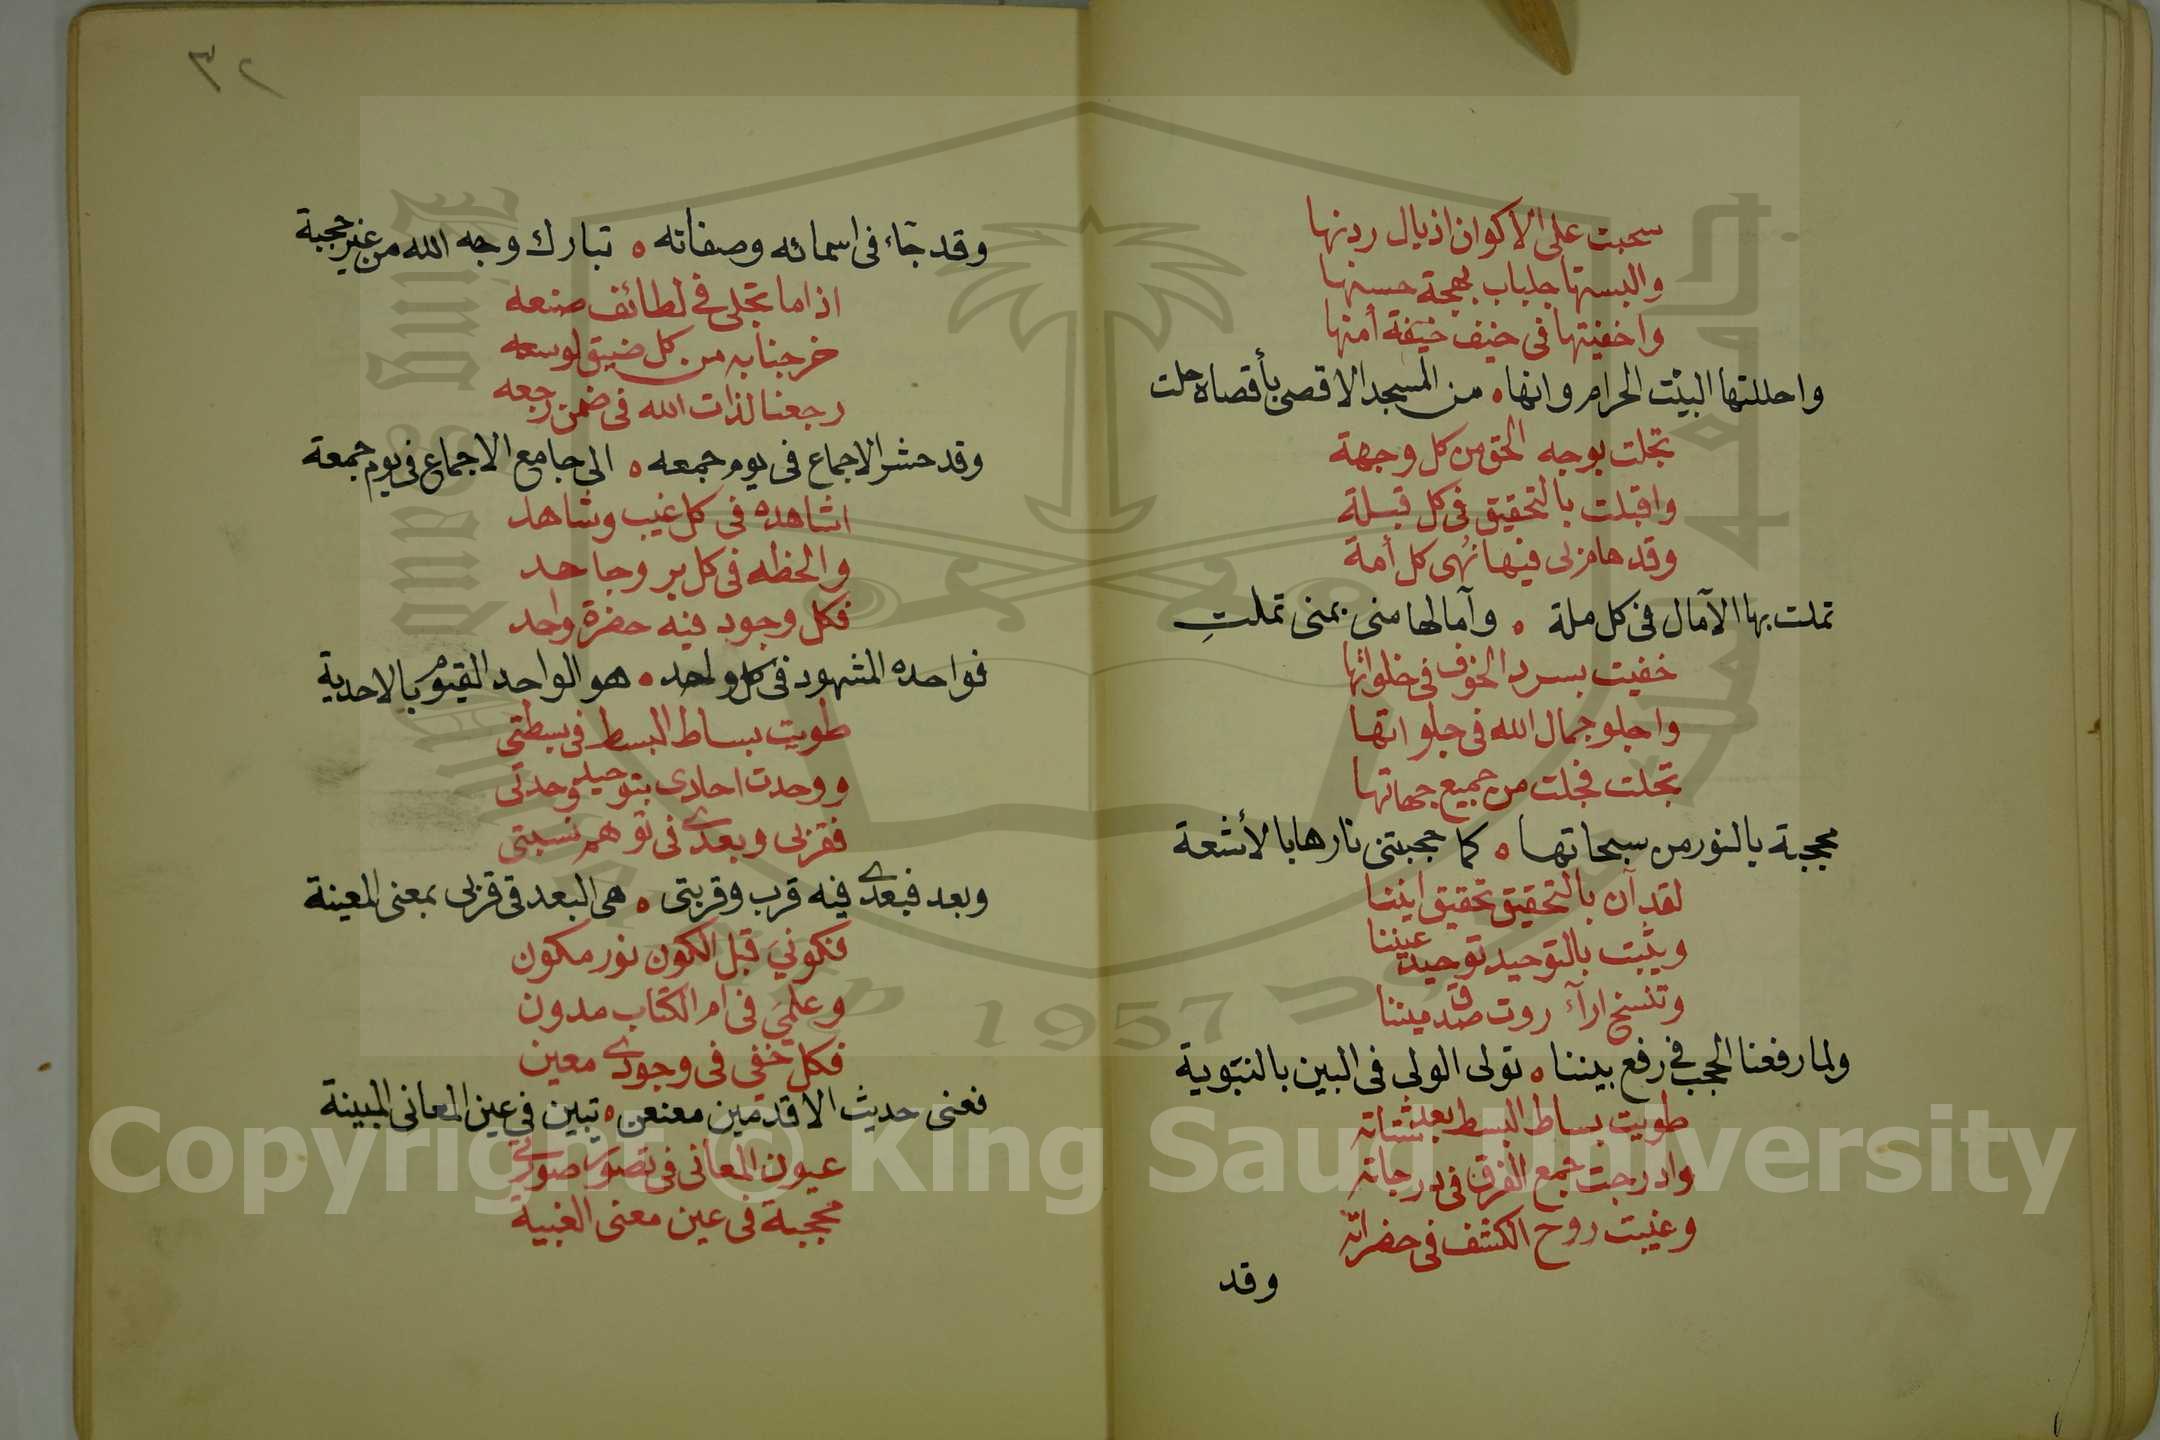 سحبت على الاكوان اذيال ردنها
والبستها جلباب بهجة حسنها
واخفيتها فى خيف خيفة أمنها
واحللتها البيت الحرام وانها ه من المسجد الاقصى بأقصاه حلت
تجلت بوجه الحق من كل وجهة
واقبلت بالتحقيق فى كل قبلة
وقد هام بى فيها نهى كل أمة
تملت بها الآمال فى كل ملة ه وآمالها منى بمنى تملتِ
خفيت بسرد الخوف فى خلواتها
واجلو جمال الله فى جلواتها
تجلت فجلت من جميع جهاتها
محجبة بالنور من سبحاتها ه كما حجبتنى نارها بالأشعة
لقد آن بالتحقيق تحقيق ايننا
ويثبت بالتوحيد توحيد عيننا
وتنسخ اراء روت صدق ميننا
ولما رفعنا الحجب فى رفع بيننا ه تولى الولى فى البين بالنبوية
طويت بساط البسط بعد شتاته
وادرجت جمع الفرق فى درجاته
وغيبت روح الكشف فى حضراته
وقد
٣٢
وقد جاء فى اسمائه وصفاته ه تبارك وجه الله من غير حجبة
اذا ما تجلى فى لطائف صنعه
خرجنا به من كل ضيق لوسعه
رجعنا لذات الله فى ضمن رجعه
وقد حشر الاجماع فى يوم جمعه ه الى جامع الاجماع فى يوم جمعة
اشاهده فى كل غيب وشاهد
والحظه فى كل بر وجاحد
فكل وجود فيه حضرة واحد
فواحده المشهود فى كل واحد ه هو الواحد القيوم بالاحدية
طويت بساط البسط فى بسطتى
ووحدت احادى بتوحيد وحدتى
فقربى وبعدى فى توهم نسبتى
وبعد فبعدى فيه قرب وقربتى ه هى البعد فى قربى بمعنى المعينة
فكونى قبل الكون نور مكون
وعلمى فى ام الكتاب مدون
فكل خفى فى وجودى معين
فعنى حديث الاقدمين معنعن ه تبين فى عين المعانى المبينة
عيون المعانى فى تصوير صورتى
محجبة فى عين معنى الغيبية
Copyright © King Saud University
1957